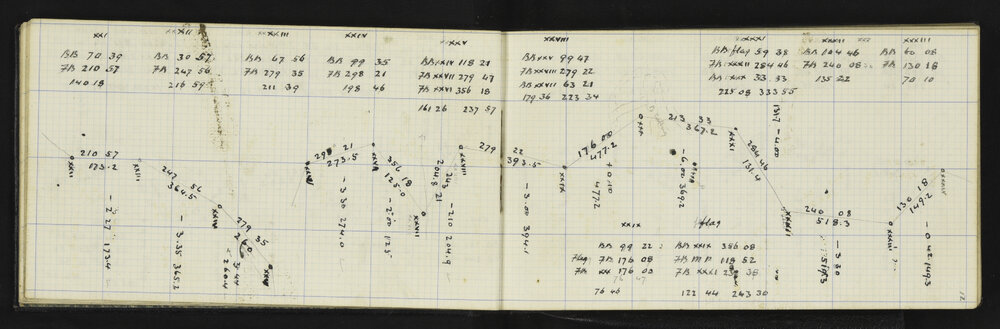 XXI
BB 70 39
FB 210 57
140 18
XXII
BB 30 57
FB 247 56
216 59
XXIII
BB 67 56
FB 279 35
211 39
XXIV
BB 99 35
FB 298 21
198 46
XXV
BB XXIV 118 21
FB XXVII 279 47
FB XXVI 356 18
161 26 237 57
XXVIII
BB XXV 99 47
FB XXVIII 279 22
BB XXVII 63 21
179 36 223 34
XXXI
BB flag 59 38
FB XXXII 284 46
BB XXX 33 33
225 08 333 55
XXXII
BB 104 46
FB 240 08
135 22
XXXIII
BB 60 08
FB 130 18
70 10
XXII
210 57
173.2
- 2.27 173.4
XXIII
247 56
364.5
- 3.35 365.2
XXIV
279 35
260
- 3.44 260.4
298 21
273.5
- 3 30 274.0
356 18
125.0
- 2.00 125
XXVII
243 21
204.8
- 210 204.9
XXVIII
279 22
393.5
- 3.00 394.1
XXIX
176 08
477.2
+ 0 10
477.2
XXX
213 33
367.2
- 6.00 369.2
XXXI
284 46
131.4
131.7 - 4.00
XXXII
240 08
518.3
- 3.30
XXXIII
130 18
149.2
- 0 42 149.3
XXIX
BB 99 22
Flag FB 176 08
FB XXX 176 08
76 46
flag
BB XXIX 356 08
FB M P 118 52
FB XXXI 239 38
122 44 243 30
12